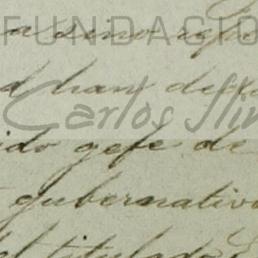 FUNDACIÓ
a sino
d han de
Carlos Slim
ido gefe de
gubernativo
el titulado